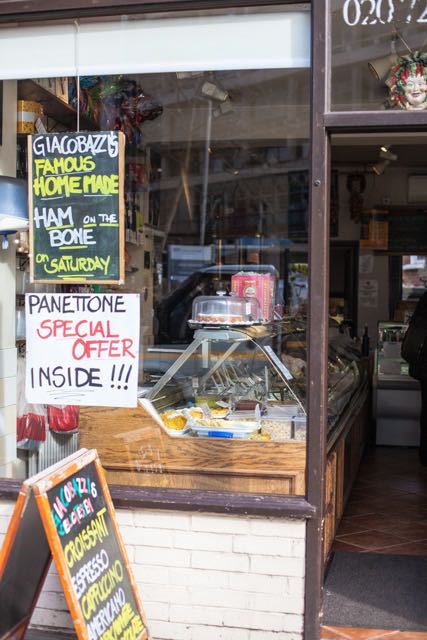 020 72
GIACOBAZZI'S
FAMOUS
HOMEMADE
HAM ON THE
BONE
ON SATURDAY
PANETTONE
SPECIAL
OFFER
INSIDE !!!
GIACOBAZZI'S
CROISSANT
ESPRESSO
CAPPUCCINO
AMERICANO